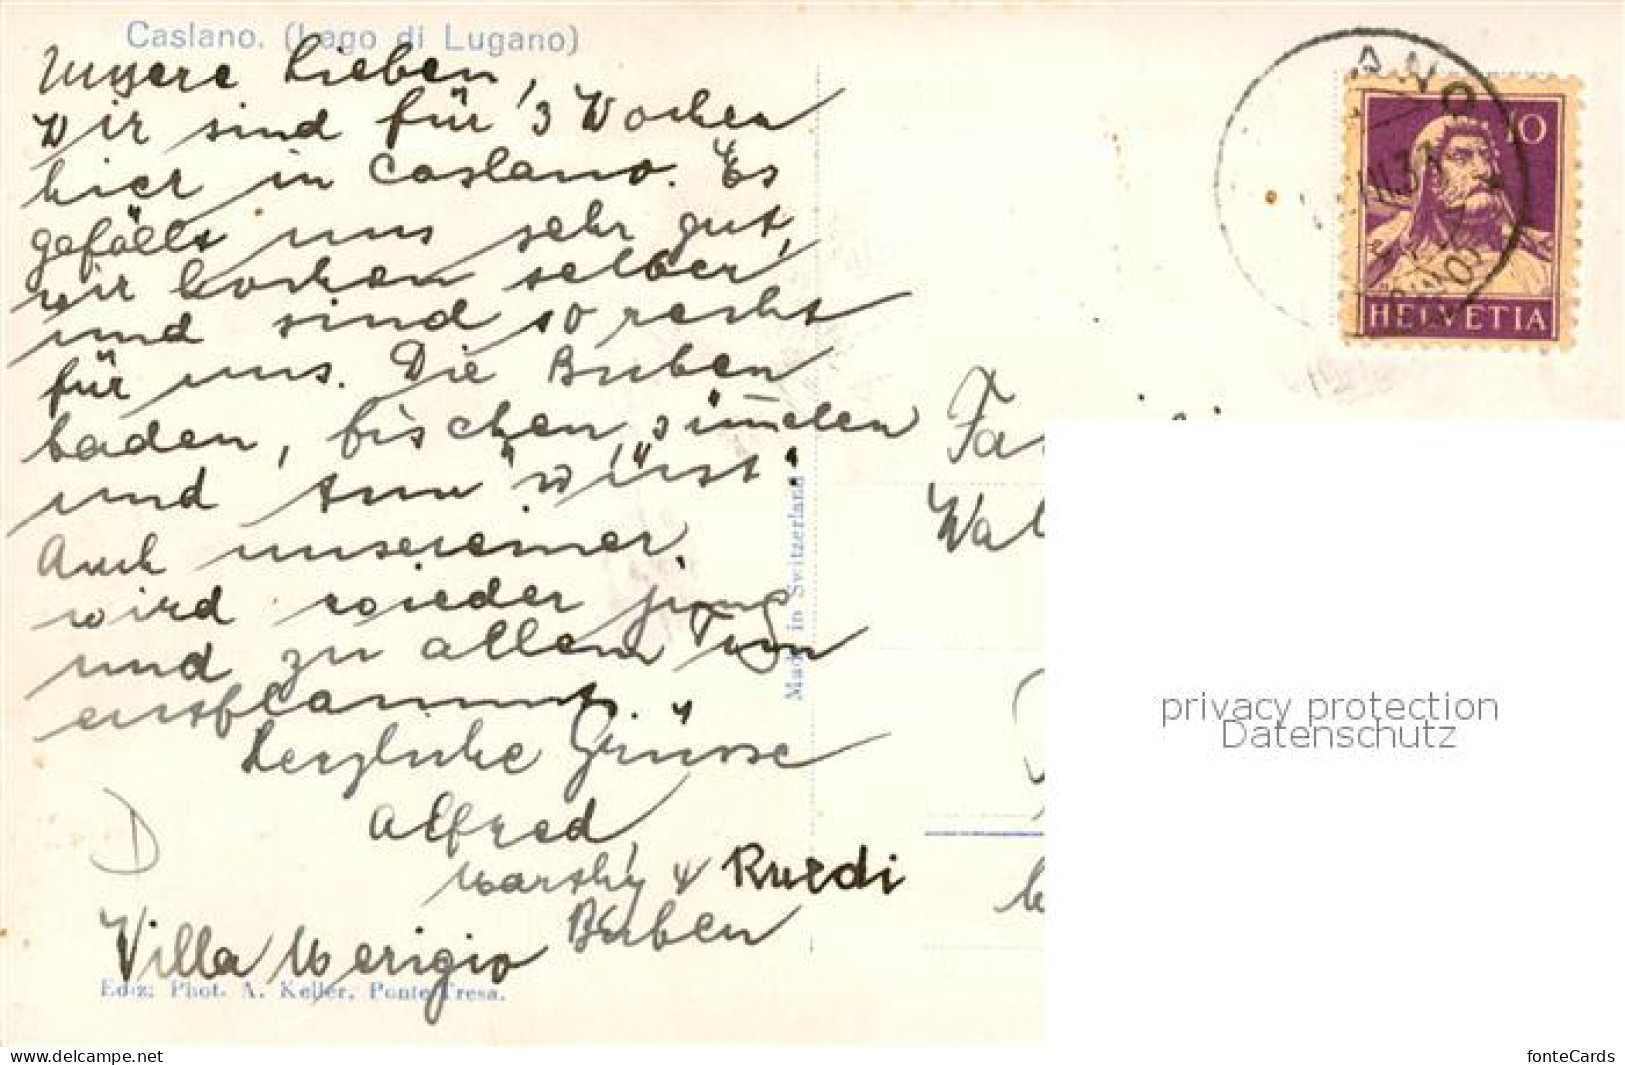 Caslano. (Lago di Lugano)
Unsere Lieben,
Wir sind für 3 Wochen
hier in Caslano. Es
gefällt uns sehr gut,
wir kochen selber,
und sind so recht
für uns. Die Buben
baden, fischen,
und tun wüst.
Auch unsereiner
wird wieder jung
und zu allem Tun
entflammt.
Herzliche Grüsse
Alfred,
& Ruedi
Buben
Villa Merigio
Ediz: Phot. A. Keller, Ponte Tresa.
Made in Switzerland
ANO
10
HELVETIA
Fa
Wal
D
privacy protection
Datenschutz
www.delcampe.net
fonteCards